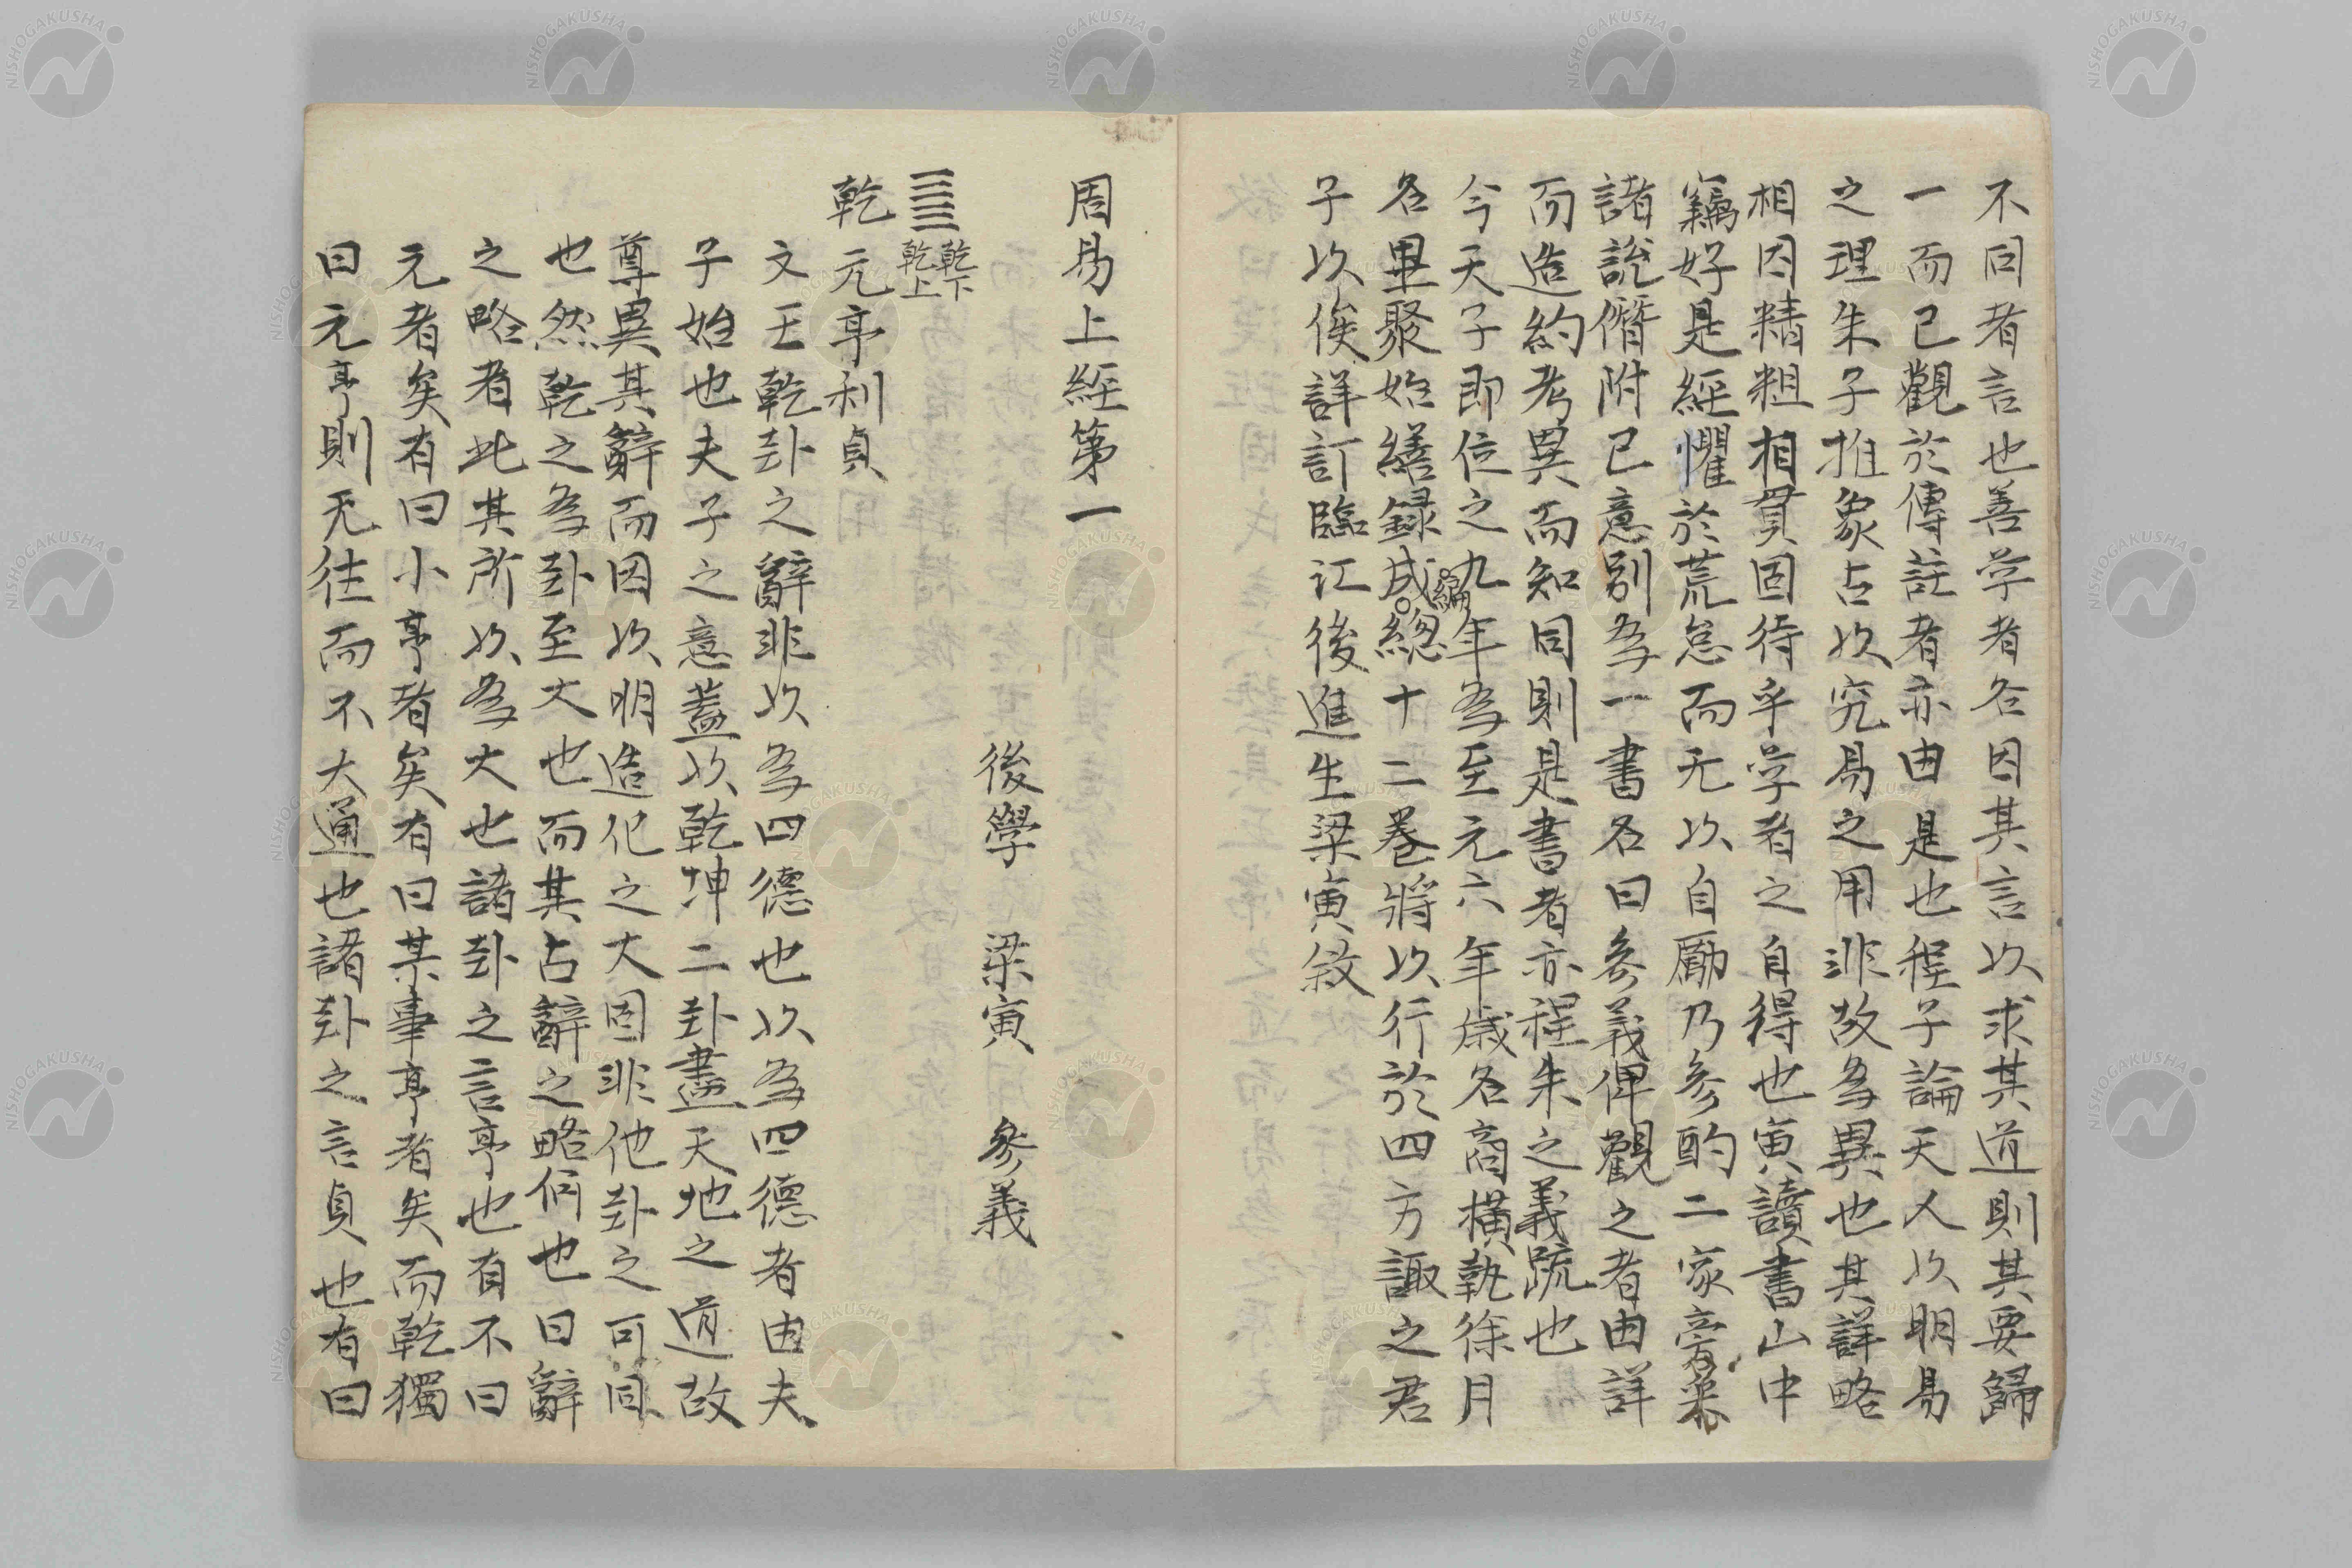 不同者言也善学者各因其言以求其道則其要歸
一而已觀於傳註者亦由是也程子論天人以明易
之理朱子推象占以究易之用非故為異也其詳略
相因精粗相貫固待乎学者之自得也寅讀書山中
竊好是經懼於荒怠而无以自勵乃參酌二家旁采
諸說僭附已意別為一書名曰參義俾觀之者由詳
而造約考異而知同則是書者亦程朱之義疏也
今天子即位之九年為至元六年歲名商橫執徐月
名畢聚始繕録成編總十二卷將以行於四方諏之君
子以俟詳訂臨江後進生梁寅叙
周易上經第一
後學 梁寅 參義
䷀ 乾下乾上
乾元亨利貞
文王乾卦之辭非以為四德也以為四德者由夫
子始也夫子之意蓋以乾坤二卦盡天地之道故
尊異其辭而因以明造化之大固非他卦之可同
也然乾之為卦至大也而其占辭之略何也曰辭
之略者此其所以為大也諸卦之言亨也有不曰
元者矣有曰小亨者矣有曰某事亨者矣而乾獨
曰元亨則无往而不大通也諸卦之言貞也有曰
NISHOGAKUSHA